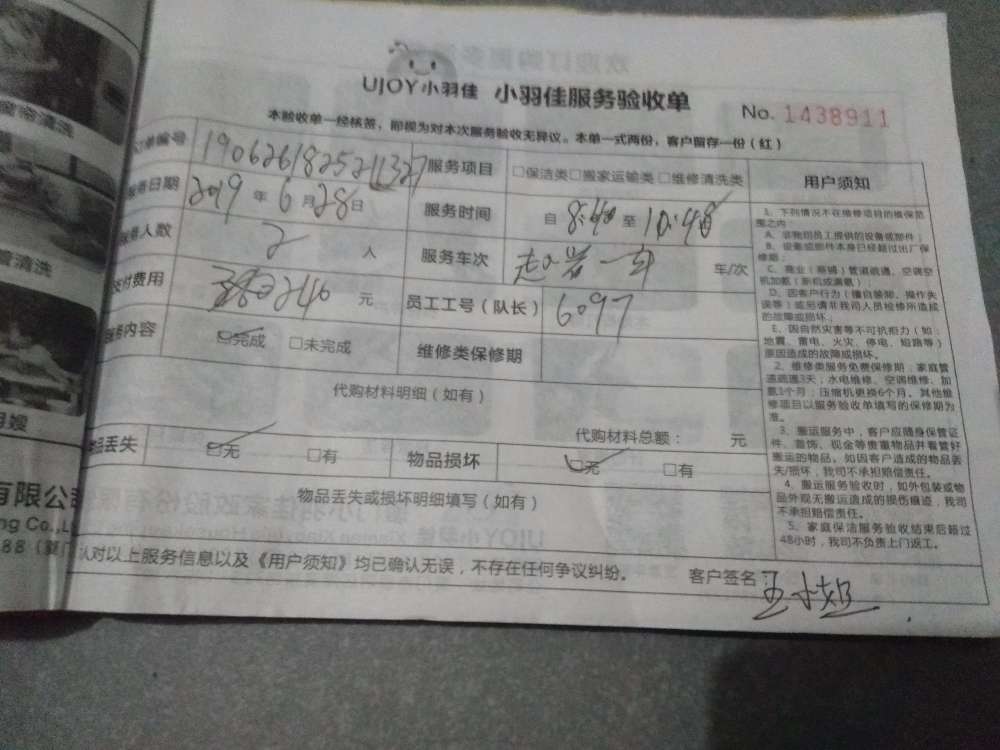 UJOY小羽佳 小羽佳服务验收单
No. 1438911
本验收单一经核签，即视为对本次服务验收无异议。本单一式两份，客户留存一份（红）
订单编号 服务项目 □保洁类□搬家运输类□维修清洗类
服务日期 2019 年 6 月 28 日 服务时间 自 8:40 至
服务人数 2 人 服务车次 车/次
支付费用 240 元 员工工号（队长） 6097
服务内容 □完成 □未完成 维修类保修期
代购材料明细（如有）
代购材料总额： 元
物品丢失 □无 □有 物品损坏 □无 □有
物品丢失或损坏明细填写（如有）
认对以上服务信息以及《用户须知》均已确认无误，不存在任何争议纠纷。 客户签名：王小姐
用户须知
1、下列情况不在维修项目的维保范
围之内：
A、非我司员工提供的设备或部件；
B、设备或部件本身已经超过出厂保
修期；
C、商业（商铺）管道疏通、空调空
机加氨（新机或满氨）
D、因客户行为（擅自装卸、操作失
误等）或另请非我司人员检修所造成
的故障或损坏；
E、因自然灾害等不可抗拒力（如：
地震、雷电、火灾、停电、短路等）
原因造成的故障或损坏。
2、维修类服务免费保修期：家庭管
道疏通3天；水电维修、空调维修、加
氨1个月；压缩机更换6个月。其他维
修项目以服务验收单填写的保修期为
准。
3、搬运服务中，客户应随身保管证
件、首饰、现金等贵重物品并看管好
搬运的物品。如因客户造成的物品丢
失/损坏，我司不承担赔偿责任。
4、搬运服务验收时，如外包装或物
品外观无搬运造成的损伤痕迹，我司
不承担赔偿责任。
5、家庭保洁服务验收结束后超过
48小时，我司不负责上门返工。
窗帘清洗
管清洗
月嫂
有限公司
ng Co.,L
88（厦门